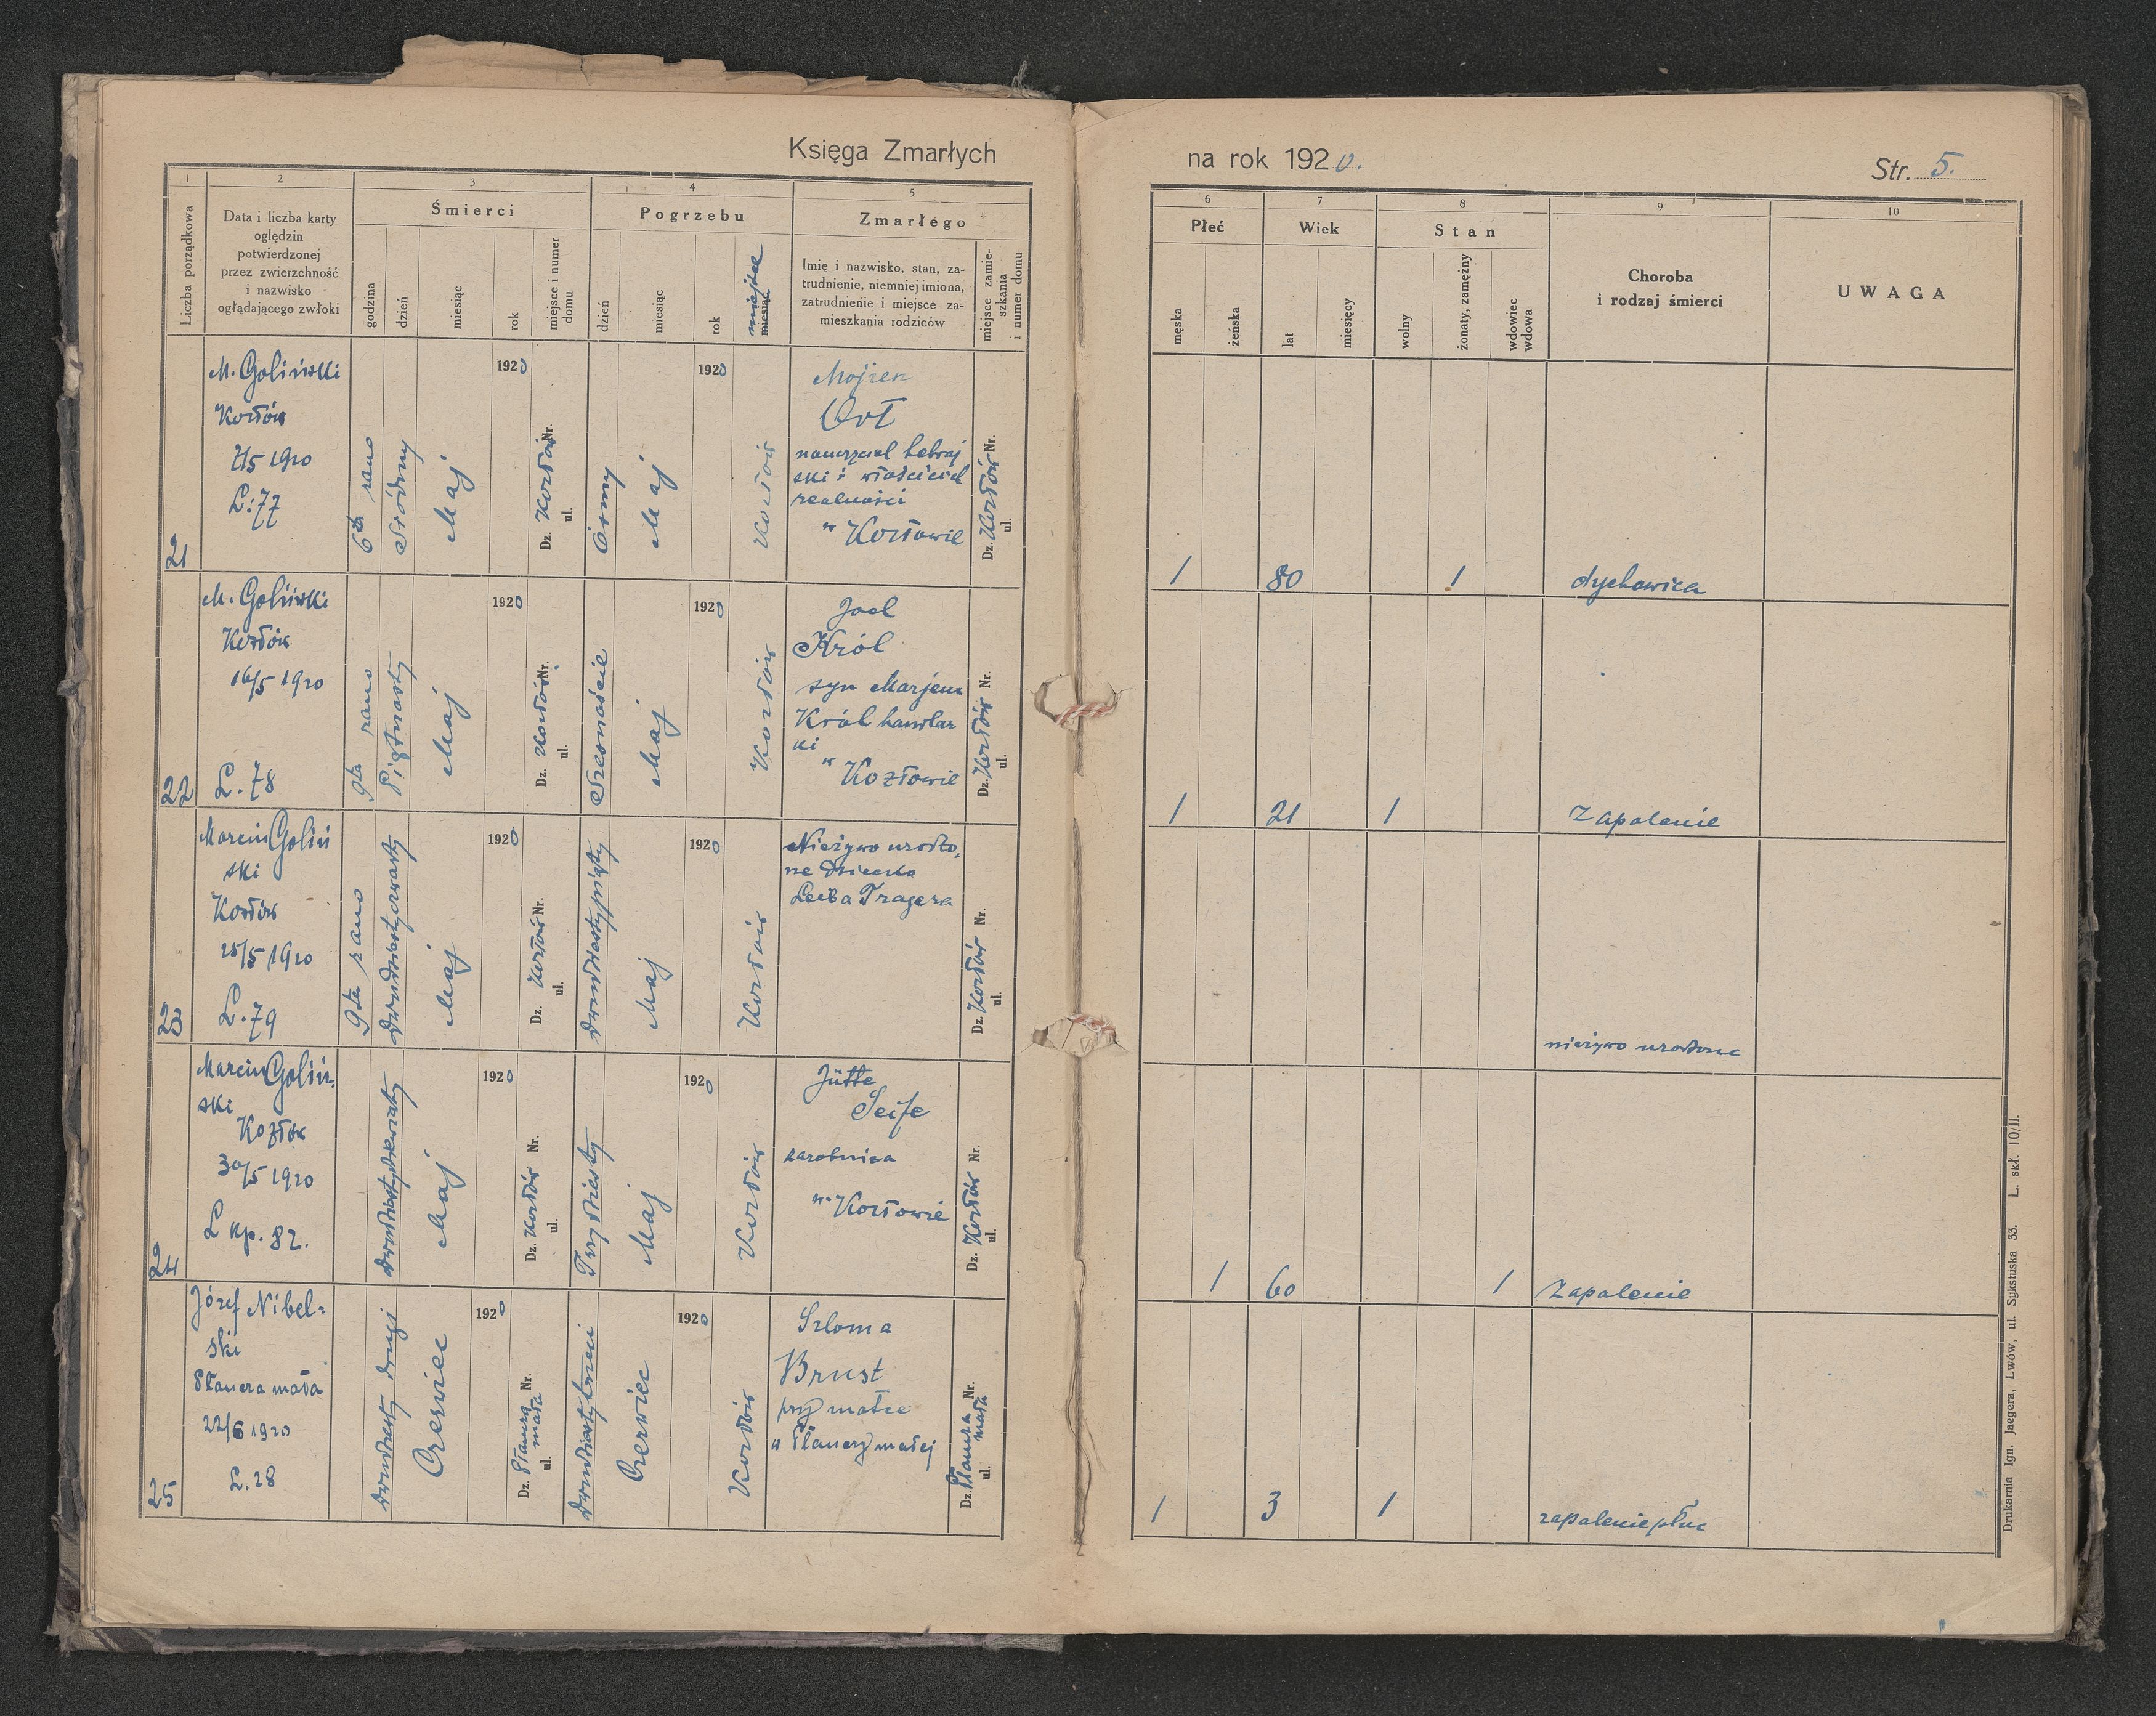 Księga Zmarłych
na rok 1920.
Str. 5.
1
2
3
4
5
6
7
8
9
10
Liczba porządkowa
Data i liczba karty
oględzin
potwierdzonej
przez zwierzchność
i nazwisko
oglądającego zwłoki
Śmierci
godzina
dzień
miesiąc
rok
miejsce i numer
domu
Pogrzebu
dzień
miesiąc
rok
miejsce
miesiąc
Zmarłego
Imię i nazwisko, stan, za-
trudnienie, niemniej imiona,
zatrudnienie i miejsce za-
mieszkania rodziców
miejsce zamie-
szkania
i numer domu
Płeć
męska
żeńska
Wiek
lat
miesięcy
Stan
wolny
żonaty, zamężny
wdowiec
wdowa
Choroba
i rodzaj śmierci
UWAGA
21
M. Goliński
Kozłów
7/5 1920
L: 77
6ta rano
Siódmy
Maj
1920
Dz. Kozłów Nr.
ul.
Ósmy
Maj
1920
Kozłów
Mojżesz
Ort
nauczyciel hebraj
ski i właściciel
realności
w Kozłowie
Dz. Kozłów Nr.
ul.
1
80
1
dychawica
22
M. Goliński
Kozłów
16/5 1920
L. 78
9ta rano
Piętnasty
Maj
1920
Dz. Kozłów Nr.
ul.
Szesnaście
Maj
1920
Kozłów
Joel
Król
syn Marjem
Król handlar
ki
w Kozłowie
Dz. Kozłów Nr.
ul.
1
21
1
Zapalenie
23
Marcin Goliń
ski
Kozłów
25/5 1920
L. 79
9ta rano
dwudziestyczwarty
Maj
1920
Dz. Kozłów Nr.
ul.
dwudziestypiąty
Maj
1920
Kozłów
Nieżywo urodzo,
ne dziecko
Leiba Tragera
Dz. Kozłów Nr.
ul.
nieżywo urodzone
24
Marcin Goliń-
ski
Kozłów
30/5 1920
L kp. 82.
dwudziestydziewiąty
Maj
1920
Dz. Kozłów Nr.
ul.
Trzydziesty
Maj
1920
Kozłów
Jütte
Seife
zarobnica
w Kozłowie
Dz. Kozłów Nr.
ul.
1
60
1
Zapalenie
25
Józef Nibel=
ski
Płaucza mała
22/6 1920
L. 28
dwudziesty drugi
Czerwiec
1920
Dz. Płaucza Nr.
ul. mała
dwudziestytrzeci
Czerwiec
1920
Kozłów
Szloma
Brust
przy matce
w Płauczy małej
Dz. Płaucza Nr.
ul. mała
1
3
1
zapalenie płuc
Drukarnia Ign. Jaegera, Lwów, ul. Sykstuska 33. L. skł. 10/II.